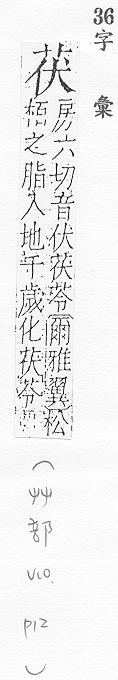 36
字彙
茯
房六切音伏茯苓爾雅翼松
栢之脂入地千歲化茯苓
(艸部
V10.
P12
)